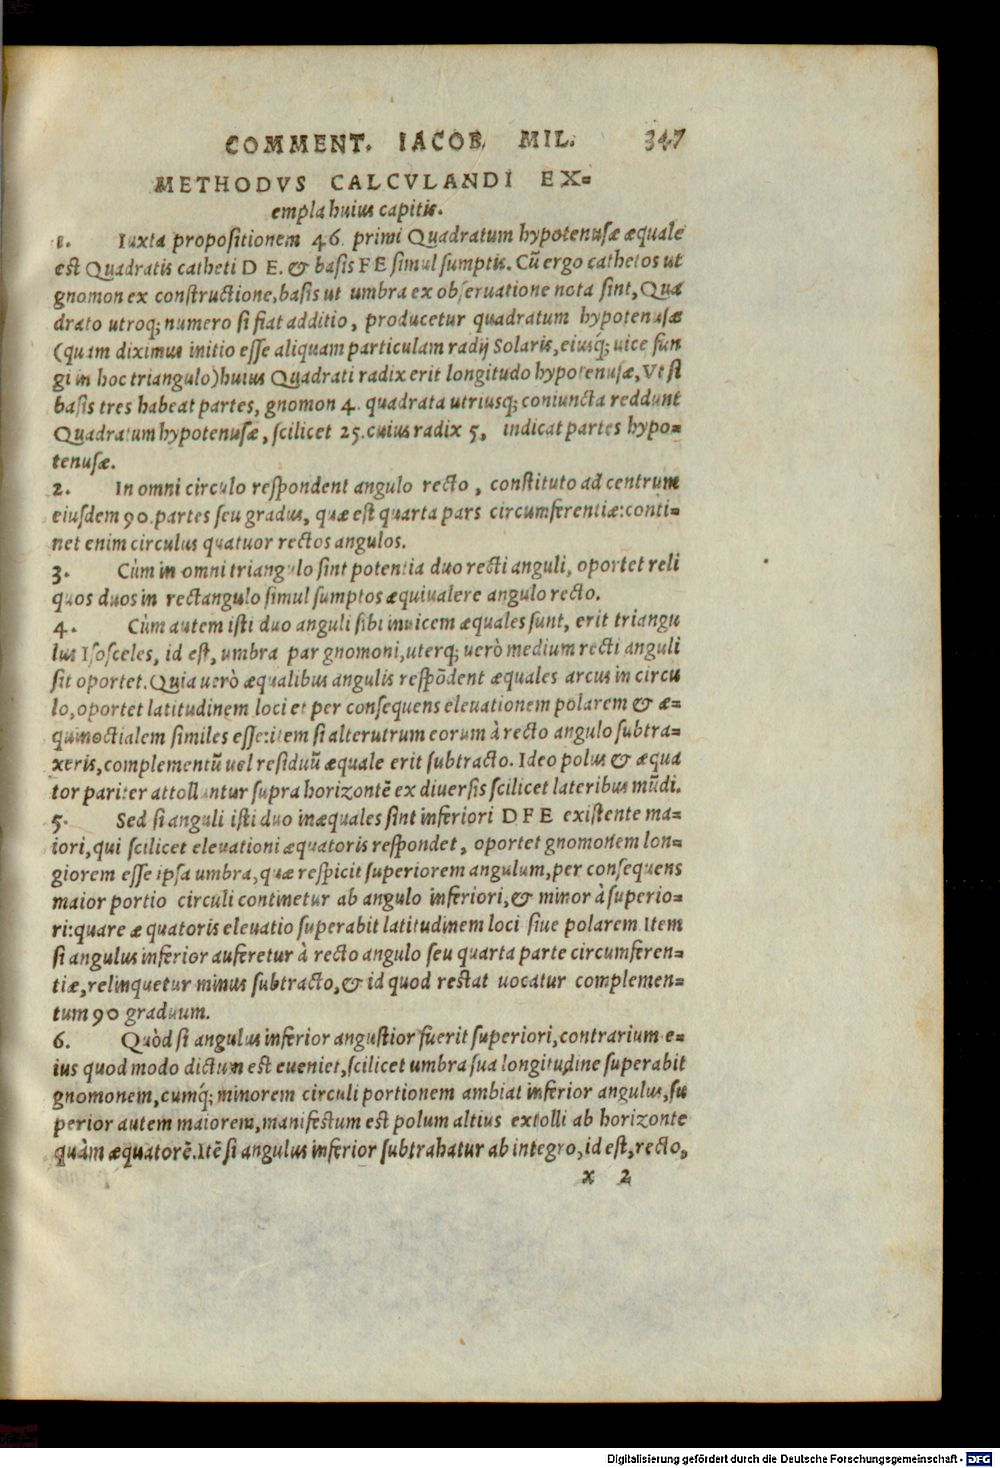 COMMENT. IACOB. MIL. 347
METHODVS CALCVLANDI EX=
empla huius capitis.
1. Iuxta propositionem 46. primi Quadratum hypotenusæ æquale
est Quadratis catheti D E. & basis F E simul sumptis. Cũ ergo cathetos ut
gnomon ex constructione, basis ut umbra ex obseruatione nota sint, Qua
drato utroq; numero si fiat additio, producetur quadratum hypotenusæ
(quam diximus initio esse aliquam particulam radij Solaris, eiusq; uice fun
gi in hoc triangulo) huius Quadrati radix erit longitudo hypotenusæ, Vt si
basis tres habeat partes, gnomon 4. quadrata utriusq; coniuncta reddunt
Quadratum hypotenusæ, scilicet 25. cuius radix 5, indicat partes hypo=
tenusæ.
2. In omni circulo respondent angulo recto, constituto ad centrum
eiusdem 90. partes seu gradus, quæ est quarta pars circumferentiæ: conti=
net enim circulus quatuor rectos angulos.
3. Cùm in omni triangulo sint potentia duo recti anguli, oportet reli
quos duos in rectangulo simul sumptos æquiualere angulo recto.
4. Cùm autem isti duo anguli sibi inuicem æquales sunt, erit triangu
lus Isosceles, id est, umbra par gnomoni, uterq; uerò medium recti anguli
sit oportet. Quia uerò æqualibus angulis respõdent æquales arcus in circu
lo, oportet latitudinem loci et per consequens eleuationem polarem & æ=
quinoctialem similes esse: item si alterutrum eorum à recto angulo subtra=
xeris, complementũ uel residuũ æquale erit subtracto. Ideo polus & æqua
tor pariter attolluntur supra horizontẽ ex diuersis scilicet lateribus mũdi.
5. Sed si anguli isti duo inæquales sint inferiori D F E existente ma=
iori, qui scilicet eleuationi æquatoris respondet, oportet gnomonem lon=
giorem esse ipsa umbra, quæ respicit superiorem angulum, per consequens
maior portio circuli continetur ab angulo inferiori, & minor à superio=
ri: quare æquatoris eleuatio superabit latitudinem loci siue polarem. Item
si angulus inferior auferetur à recto angulo seu quarta parte circumferen=
tiæ, relinquetur minus subtracto, & id quod restat uocatur complemen=
tum 90 graduum.
6. Quòd si angulus inferior angustior fuerit superiori, contrarium e=
ius quod modo dictum est eueniet, scilicet umbra sua longitudine superabit
gnomonem, cumq́; minorem circuli portionem ambiat inferior angulus, su
perior autem maiorem, manifestum est polum altius extolli ab horizonte
quàm æquatorẽ. Itẽ si angulus inferior subtrahatur ab integro, id est, recto,
x 2
Digitalisierung gefördert durch die Deutsche Forschungsgemeinschaft - DFG